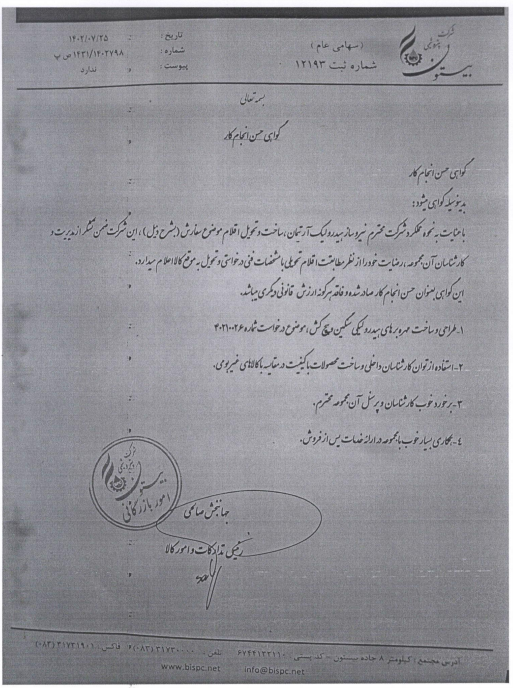 شرکت پتروشیمی
بیستون
(سهامی عام)
شماره ثبت ۱۲۱۹۳
تاریخ : ۱۴۰۲/۰۷/۲۵
شماره : ۱۴۳۱/۱۴۰۲۷۹۸ ص پ
پیوست : ندارد
بسمه تعالی
گواهی حسن انجام کار
گواهی حسن انجام کار
بدینوسیله گواهی میشود :
با عنایت به نحوه عملکرد شرکت محترم نیرو ساز هیدرولیک آرتیمان، ساخت و تحویل اقلام موضوع سفارش (بشرح ذیل) ، این شرکت ضمن تشکر از مدیریت و
کارشناسان آن مجموعه ، رضایت خود را از نظر مطابقت اقلام تحویلی با مشخصات فنی درخواستی و تحویل به موقع کالا اعلام میدارد.
این گواهی بعنوان حسن انجام کار صادر شده و فاقد هرگونه ارزش قانونی دیگری میباشد.
۱- طراحی و ساخت مهره برهای هیدرولیکی سنگین و پیچ کش ، موضوع درخواست شماره ۴۰۲۱۰۰۲۶
۲- استفاده از توان کارشناسان داخلی و ساخت محصولات با کیفیت در مقایسه با کالاهای غیر بومی.
۳- برخورد خوب کارشناسان و پرسنل آن مجموعه محترم.
۴- همکاری بسیار خوب با مجموعه در ارائه خدمات پس از فروش.
شرکت پتروشیمی
بیستون
امور بازرگانی
جهانبخش صائمی
رئیس تدارکات و امور کالا
آدرس مجتمع : کیلومتر ۸ جاده بیستون - کد پستی : ۶۷۴۴۱۳۳۱۱۰ تلفن : ۳۱۷۳۰۰۰۰ (۰۸۳) فاکس : ۳۱۷۳۱۹۰۱ (۰۸۳)
www.bispc.net info@bispc.net